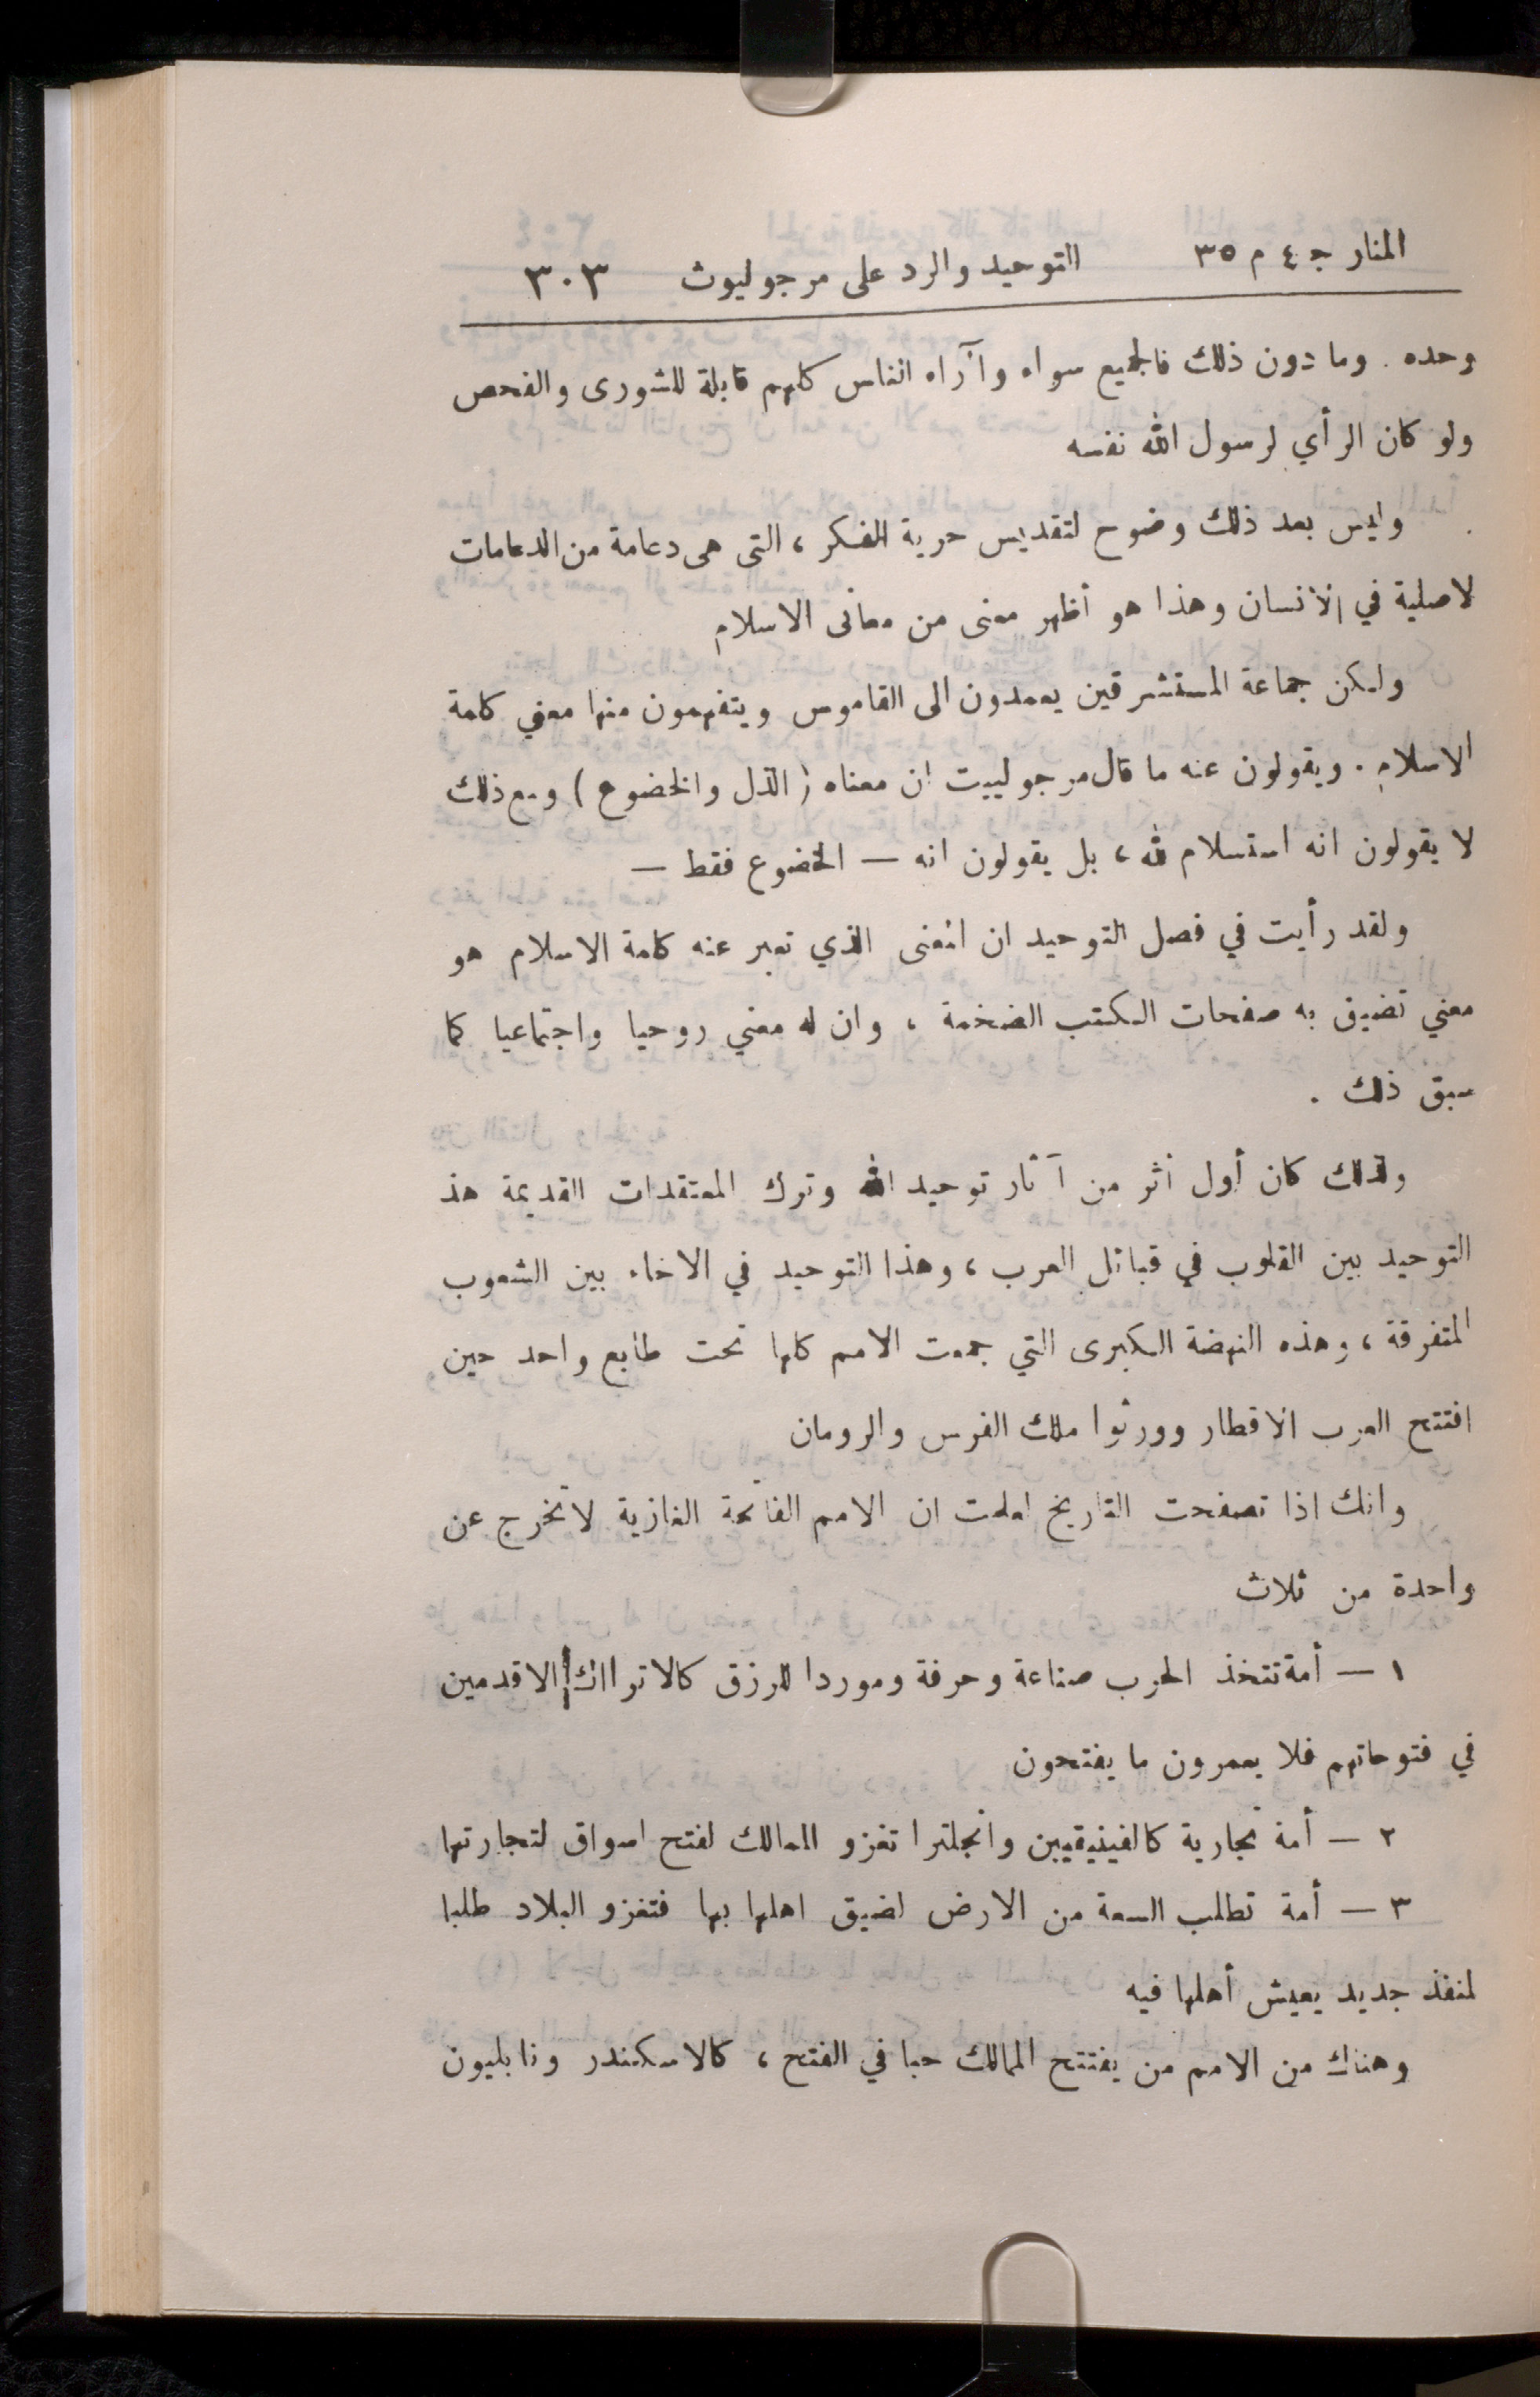 المنار ج ٤ م ٣٥ التوحيد والرد على مرجوليوث ٣٠٣
وحده . وما دون ذلك فالجميع سواء وآراء الناس كلهم قابلة للشورى والفحص
ولو كان الرأي لرسول الله نفسه
وليس بعد ذلك وضوح لتقديس حرية الفكر ، التى هى دعامة من الدعامات
لاصلية في الانسان وهذا هو أظهر معنى من معانى الاسلام
ولكن جماعة المستشرقين يعمدون الى القاموس ويتفهمون منها معني كلمة
الاسلام . ويقولون عنه ما قال مرجولييت ان معناه ( الذل والخضوع ) ومع ذلك
لا يقولون انه استسلام لله ، بل يقولون انه — الخضوع فقط —
ولقد رأيت في فصل التوحيد ان المعنى الذي تعبر عنه كلمة الاسلام هو
معني تضيق به صفحات الكتب الضخمة ، وان له معني روحيا واجتماعيا كما
سبق ذلك .
ولذلك كان أول أثر من آثار توحيد الله وترك المعتقدات القديمة هذ
التوحيد بين القلوب في قبائل العرب ، وهذا التوحيد في الاخاء بين الشعوب
المتفرقة ، وهذه النهضة الكبرى التي جمعت الامم كلها تحت طابع واحد حين
افتتح العرب الاقطار وورثوا ملك الفرس والرومان
وانك اذا تصفحت التاريخ لعلمت ان الامم الفاتحة الغازية لا تخرج عن
واحدة من ثلاث
١ — أمة تتخذ الحرب صناعة وحرفة وموردا للرزق كالاتراك الاقدمين
في فتوحاتهم فلا يعمرون ما يفتحون
٢ — أمة تجارية كالفينيقيين وانجلترا تغزو الممالك لفتح اسواق لتجارتها
٣ — أمة تطلب السعة من الارض لضيق اهلها بها فتغزو البلاد طلبا
لمنفذ جديد يعيش أهلها فيه
وهناك من الامم من يفتتح الممالك حبا في الفتح ، كالاسكندر ونابليون